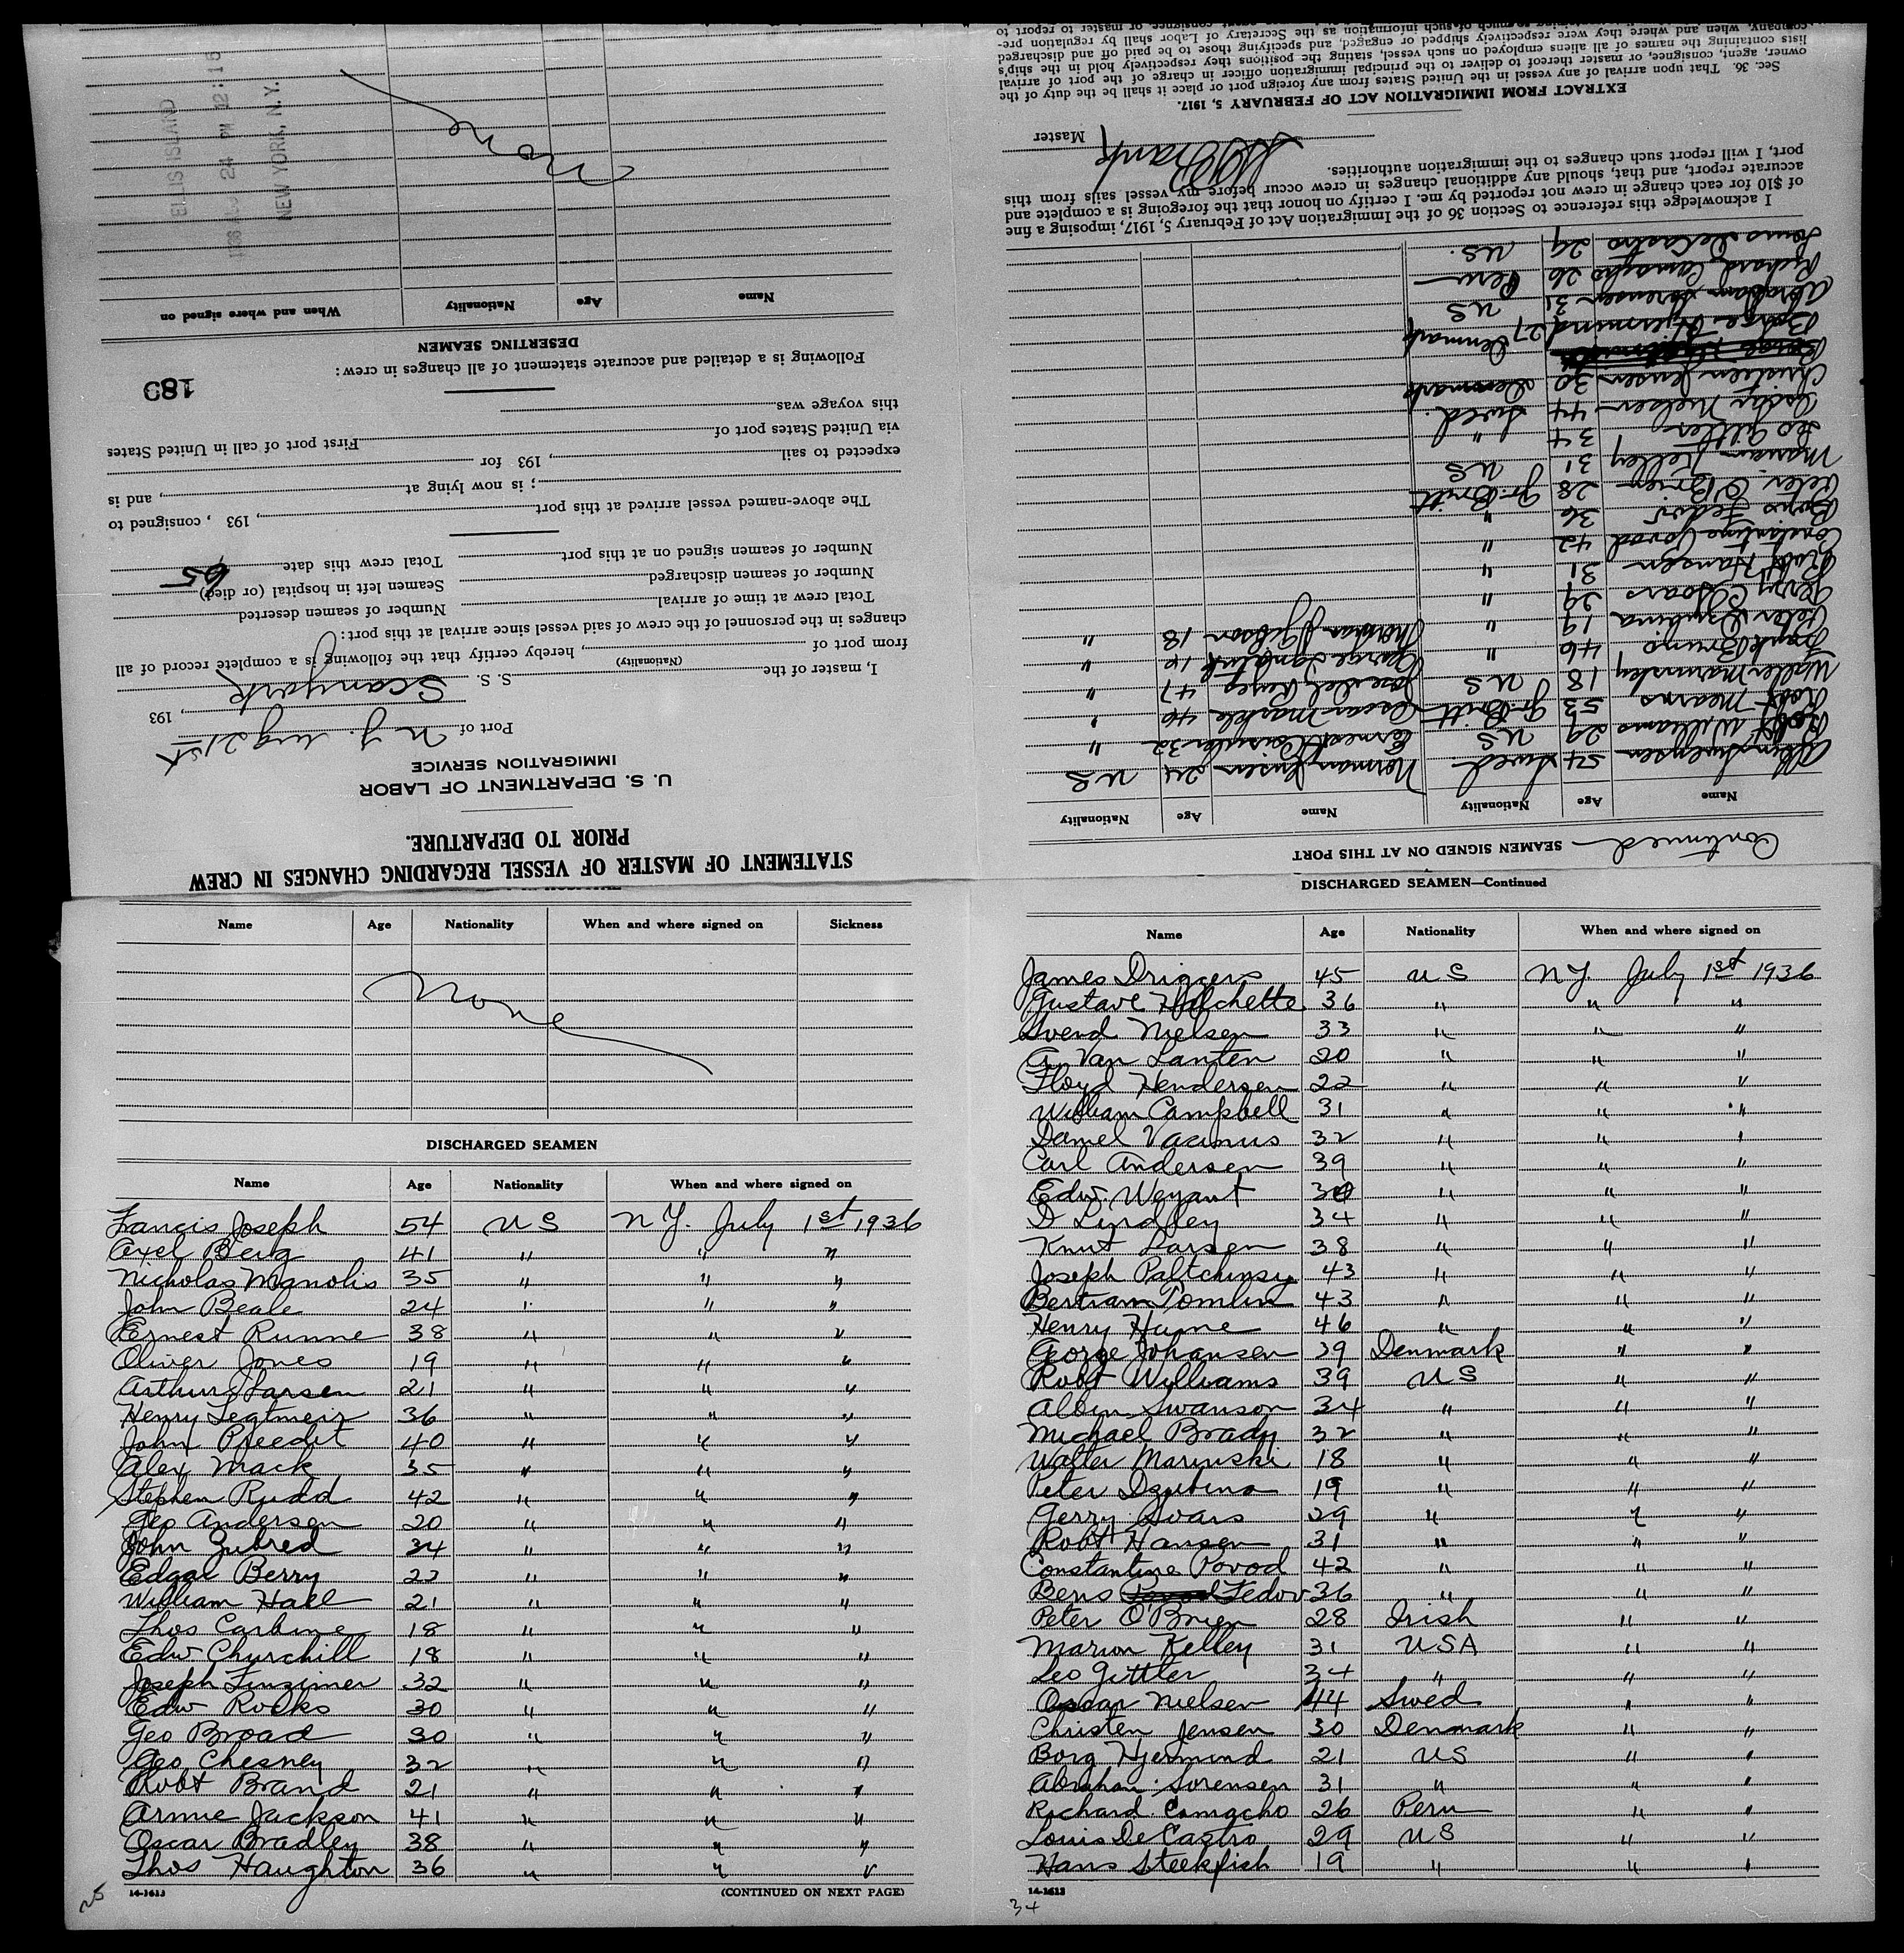 STATEMENT OF MASTER OF VESSEL REGARDING CHANGES IN CREW
PRIOR TO DEPARTURE.
U. S. DEPARTMENT OF LABOR
IMMIGRATION SERVICE
Port of N. Y. Aug 21st, 193
I, master of the S. S. Scanyork
(Nationality)
from port of , hereby certify that the following is a complete record of all
changes in the personnel of the crew of said vessel since arrival at this port:
Total crew at time of arrival Number of seamen deserted
Number of seamen discharged Seamen left in hospital (or died)
Number of seamen signed on at this port Total crew this date 65
The above-named vessel arrived at this port , 193 , consigned to
; is now lying at , and is
expected to sail , 193 for
via United States port of First port of call in United States
this voyage was
189
Following is a detailed and accurate statement of all changes in crew:
DESERTING SEAMEN
Name Age Nationality When and where signed on
None
ELLIS ISLAND
24 PM 12:16
NEW YORK, N. Y.
Continued SEAMEN SIGNED ON AT THIS PORT
Name Age Nationality Name Age Nationality
Albin Swensen 54 Swed. Norman Jensen 24 U S
Robt Williams 29 U S Ernest 32 "
Robt Mearns 53 Gr. Britt Oscar Markle 46 "
Walter Marinsky 18 U S Jose Del Reyes 47 "
Frank Bruno 46 " George 16 "
Peter Dzubina 19 " Sherman Gibson 18 "
Gerry Soars 29 "
Robt Hansen 31 "
Constantine Povod 42 "
Boris Fedor 36 "
Peter O'Brien 28 Gr. Britt
Marion Kelley 31 U S
Leo Gittler 34 "
Oscar Nielsen 44 Swed.
Christen Jensen 30 Denmark
Borge Hjermind 27 Denmark
Abraham Sorensen 31 U S
Richard Camacho 26 Peru
Louis DeCastro 29 U S.
I acknowledge this reference to Section 36 of the Immigration Act of February 5, 1917, imposing a fine
of $10 for each change in crew not reported by me. I certify on honor that the foregoing is a complete and
accurate report, and that, should any additional changes in crew occur before my vessel sails from this
port, I will report such changes to the immigration authorities.
Master
EXTRACT FROM IMMIGRATION ACT OF FEBRUARY 5, 1917.
Sec. 36. That upon arrival of any vessel in the United States from any foreign port or place it shall be the duty of the
owner, agent, consignee, or master thereof to deliver to the principal immigration officer in charge of the port of arrival
lists containing the names of all aliens employed on such vessel, stating the positions they respectively hold in the ship's
company, when and where they were respectively shipped or engaged, and specifying those to be paid off and discharged
Name Age Nationality When and where signed on Sickness
None
DISCHARGED SEAMEN
Name Age Nationality When and where signed on
Francis Joseph 54 U S N Y. July 1st 1936
Axel Berg 41 " " "
Nicholas Manolis 35 " " "
John Beale 24 " " "
Ernest Runne 38 " " "
Oliver Jones 19 " " "
Arthur Larsen 21 " " "
Henry Legtmeir 36 " " "
John Preedit 40 " " "
Alex Mack 35 " " "
Stephen Rudd 42 " " "
Geo Andersen 20 " " "
John Zubred 34 " " "
Edgar Berry 22 " " "
William Hall 21 " " "
Thos Carbine 18 " " "
Edw Churchill 18 " " "
Joseph Finzimer 32 " " "
Edw Rocks 30 " " "
Geo Broad 30 " " "
Geo Chesney 32 " " "
Robt Brand 21 " " "
Armie Jackson 41 " " "
Oscar Bradley 38 " " "
Thos Haughton 36 " " "
25 14-1613 (CONTINUED ON NEXT PAGE)
DISCHARGED SEAMEN—Continued
Name Age Nationality When and where signed on
James Driggers 45 U S N Y. July 1st 1936
Gustave Halchette 36 " " "
Svend Nielsen 33 " " "
A. Van Lanten 20 " " "
Floyd Hendersen 22 " " "
William Campbell 31 " " "
Daniel Vacinus 32 " " "
Carl Andersen 39 " " "
Edw. Weyant " " "
D Lindley 34 " " "
Knut Larsen 38 " " "
Joseph Paltchinsy 43 " " "
Bertram Tomlin 43 " " "
Henry Hame 46 " " "
George Johansen 39 Denmark " "
Robt Williams 39 U S " "
Albin Swanson 34 " " "
Michael Brady 32 " " "
Walter Marinski 18 " " "
Peter Dzubina 19 " " "
Gerry Soars 29 " " "
Robt Hansen 31 " " "
Constantine Povod 42 " " "
Beris Fedov 36 " " "
Peter O'Brien 28 Irish " "
Marion Kelley 31 USA " "
Leo Gittler 34 " " "
Oscar Nielsen 44 Swed " "
Christen Jensen 30 Denmark " "
Borg Hjermind 21 US " "
Abraham Sorensen 31 " " "
Richard Camacho 26 Peru " "
Louis DeCastro 29 US " "
Hans Steekfish 19 " " "
14-1613
34